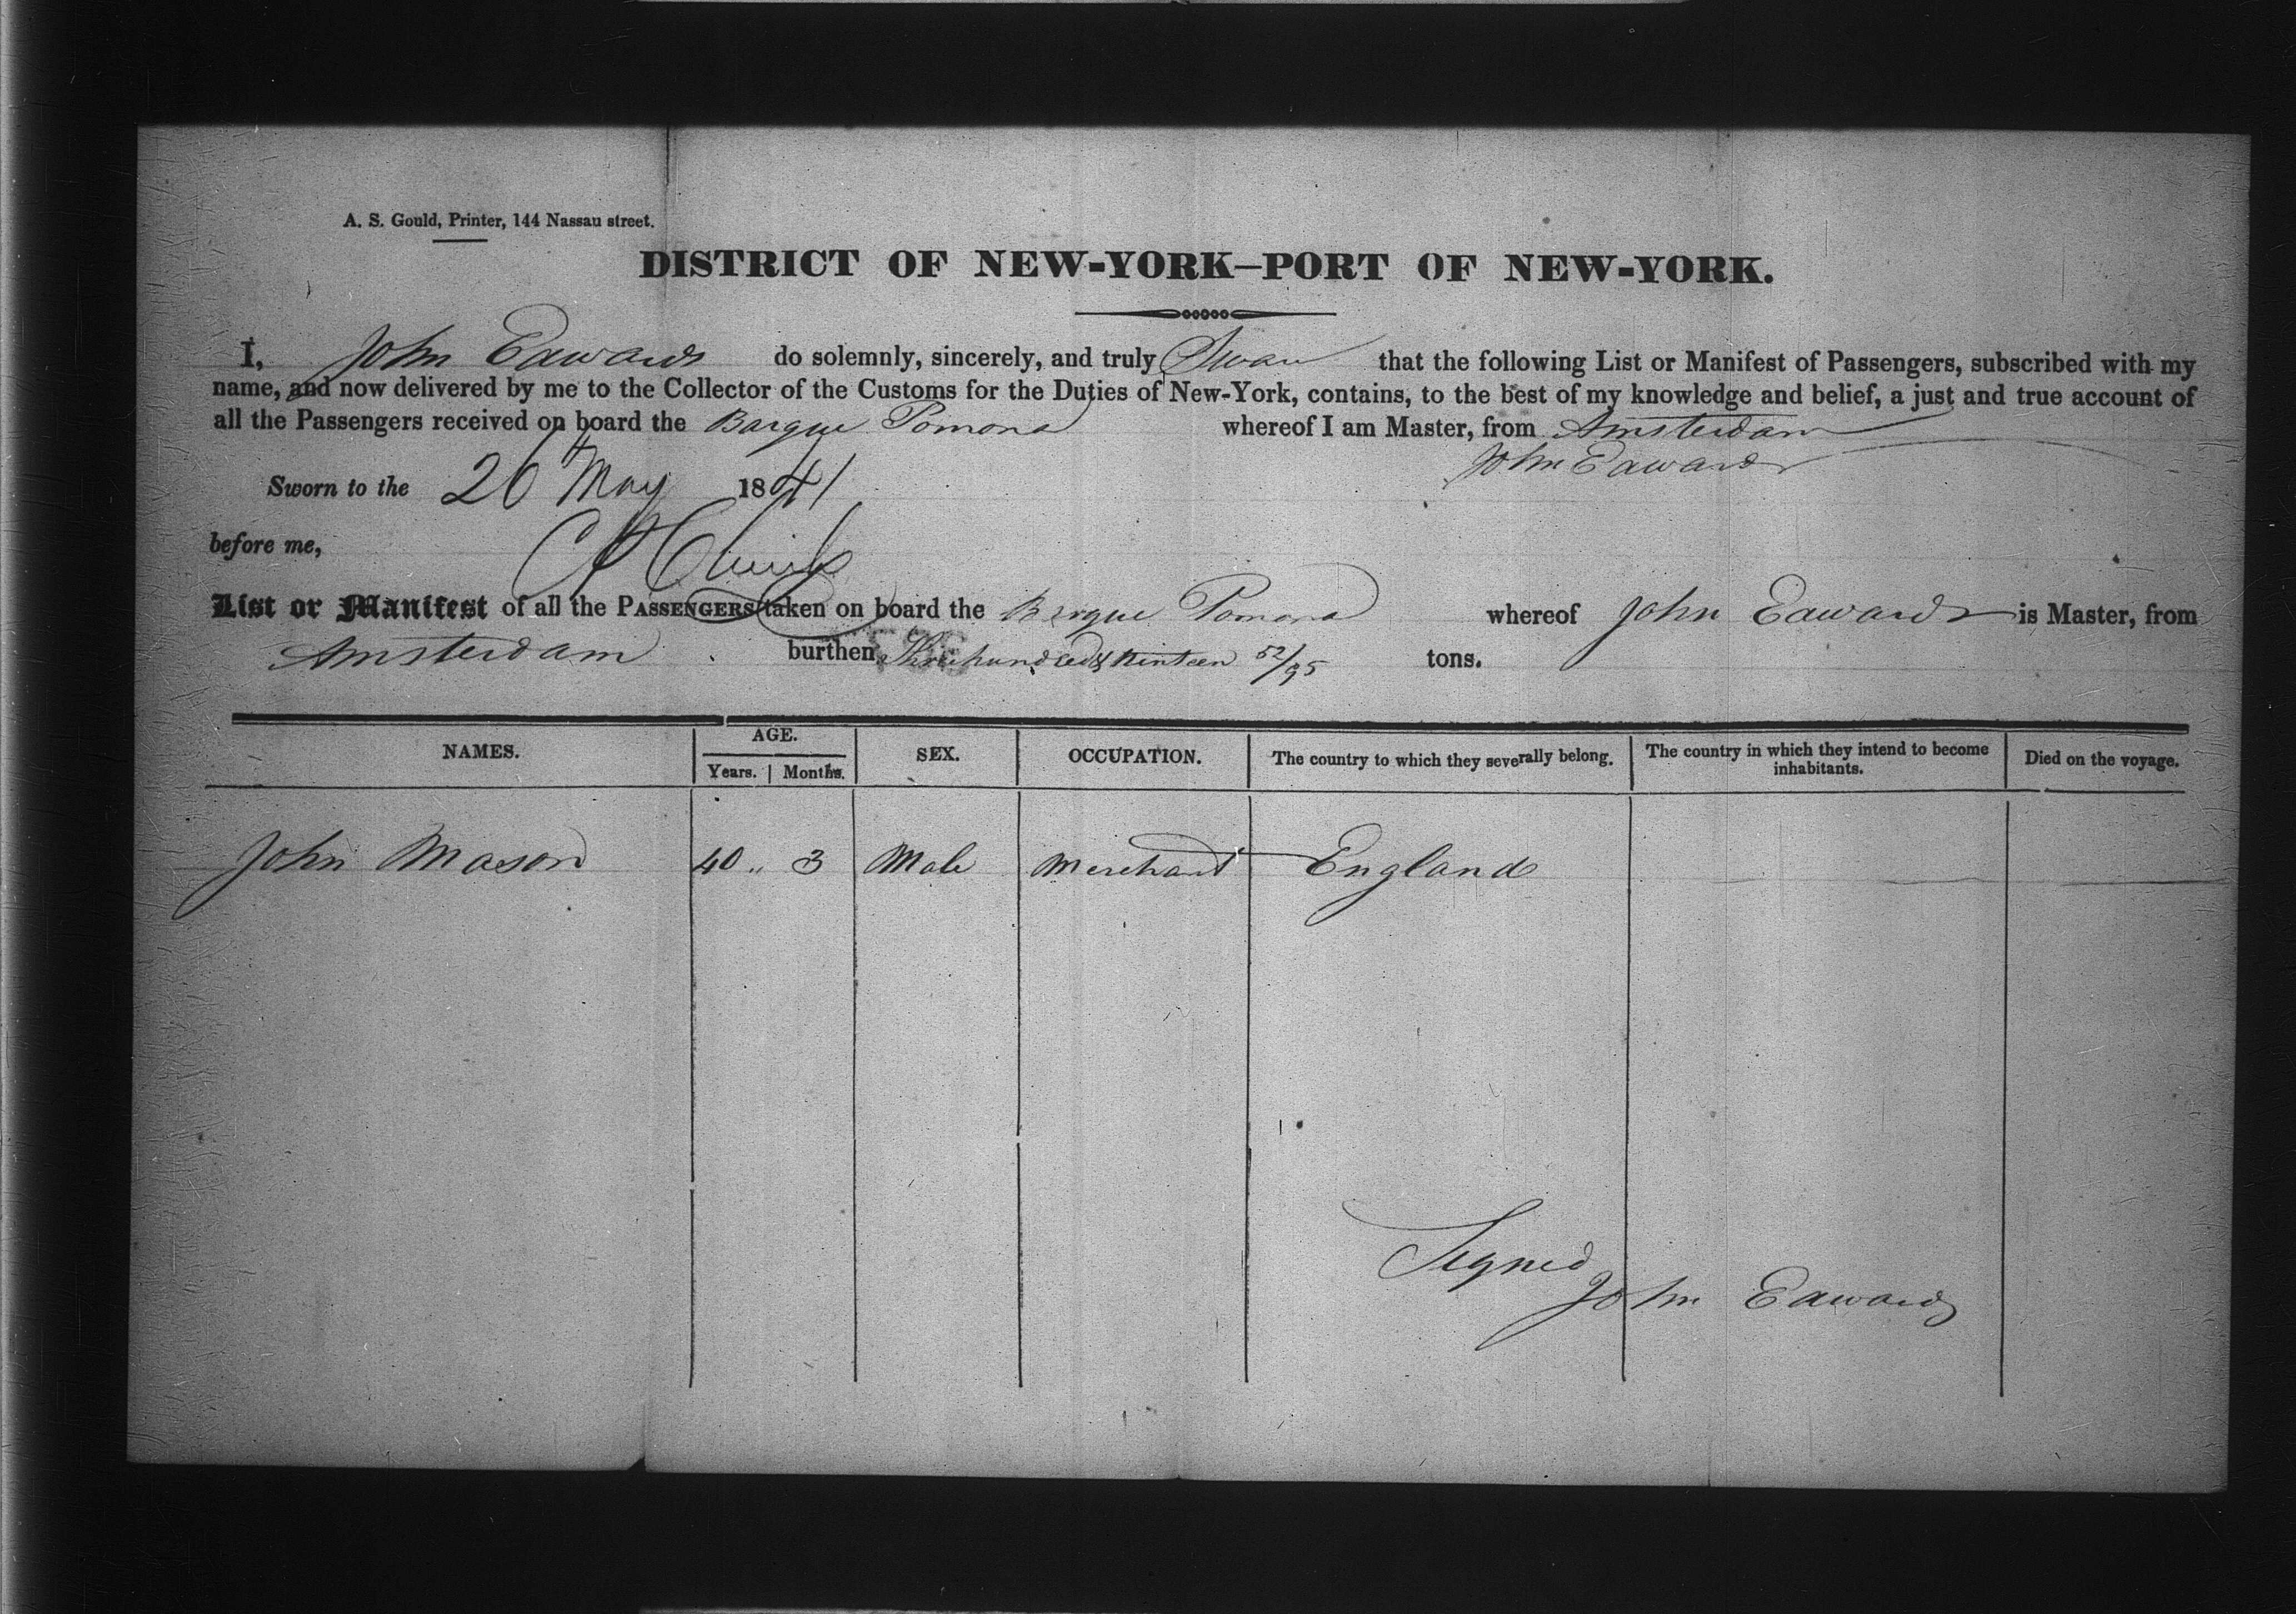 A. S. Gould, Printer, 144 Nassau street.
DISTRICT OF NEW-YORK—PORT OF NEW-YORK.
I, John Edwards do solemnly, sincerely, and truly Swear that the following List or Manifest of Passengers, subscribed with my
name, and now delivered by me to the Collector of the Customs for the Duties of New-York, contains, to the best of my knowledge and belief, a just and true account of
all the Passengers received on board the Barque Pomona whereof I am Master, from Amsterdam
John Edwards
Sworn to the 26 May 1841
before me,
List or Manifest of all the PASSENGERS taken on board the Barque Pomona whereof John Edwards is Master, from
Amsterdam burthen Three hundred & Ninteen 52/95 tons.
NAMES. AGE. Years. Months. SEX. OCCUPATION. The country to which they severally belong. The country in which they intend to become inhabitants. Died on the voyage.
John Mason 40 " 3 Male Merchant England
Signed
John Edwards